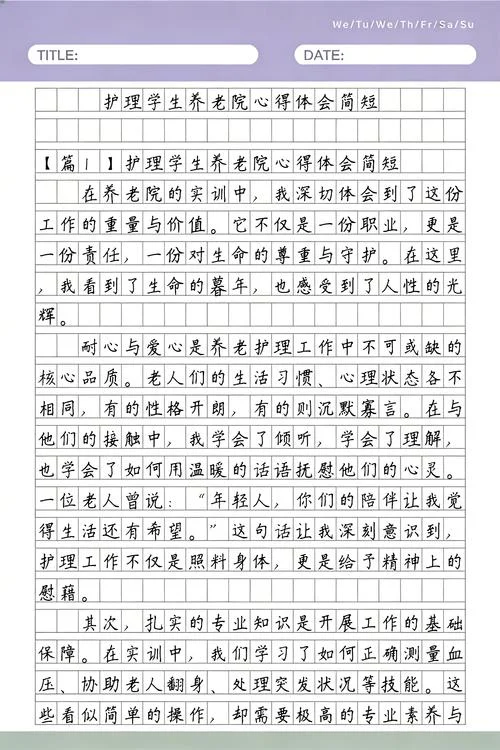 We/Tu/We/Th/Fr/Sa/Su
TITLE: DATE:
护理学生养老院心得体会简短
【篇1】护理学生养老院心得体会简短
在养老院的实训中，我深切体会到了这份
工作的重量与价值。它不仅是一份职业，更是
一份责任，一份对生命的尊重与守护。在这里
，我看到了生命的暮年，也感受到了人性的光
辉。
耐心与爱心是养老护理工作中不可或缺的
核心品质。老人们的生活习惯、心理状态各不
相同，有的性格开朗，有的则沉默寡言。在与
他们的接触中，我学会了倾听，学会了理解，
也学会了如何用温暖的话语抚慰他们的心灵。
一位老人曾说：“年轻人，你们的陪伴让我觉
得生活还有希望。”这句话让我深刻意识到，
护理工作不仅是照料身体，更是给予精神上的
慰藉。
其次，扎实的专业知识是开展工作的基础
保障。在实训中，我们学习了如何正确测量血
压、协助老人翻身、处理突发状况等技能。这
些看似简单的操作，却需要极高的专业素养与